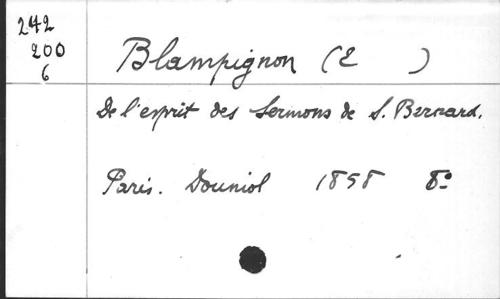 242
200
6
Blampignon (E )
De l'esprit des Sermons de S. Bernard.
Paris. Douniol 1858 8º